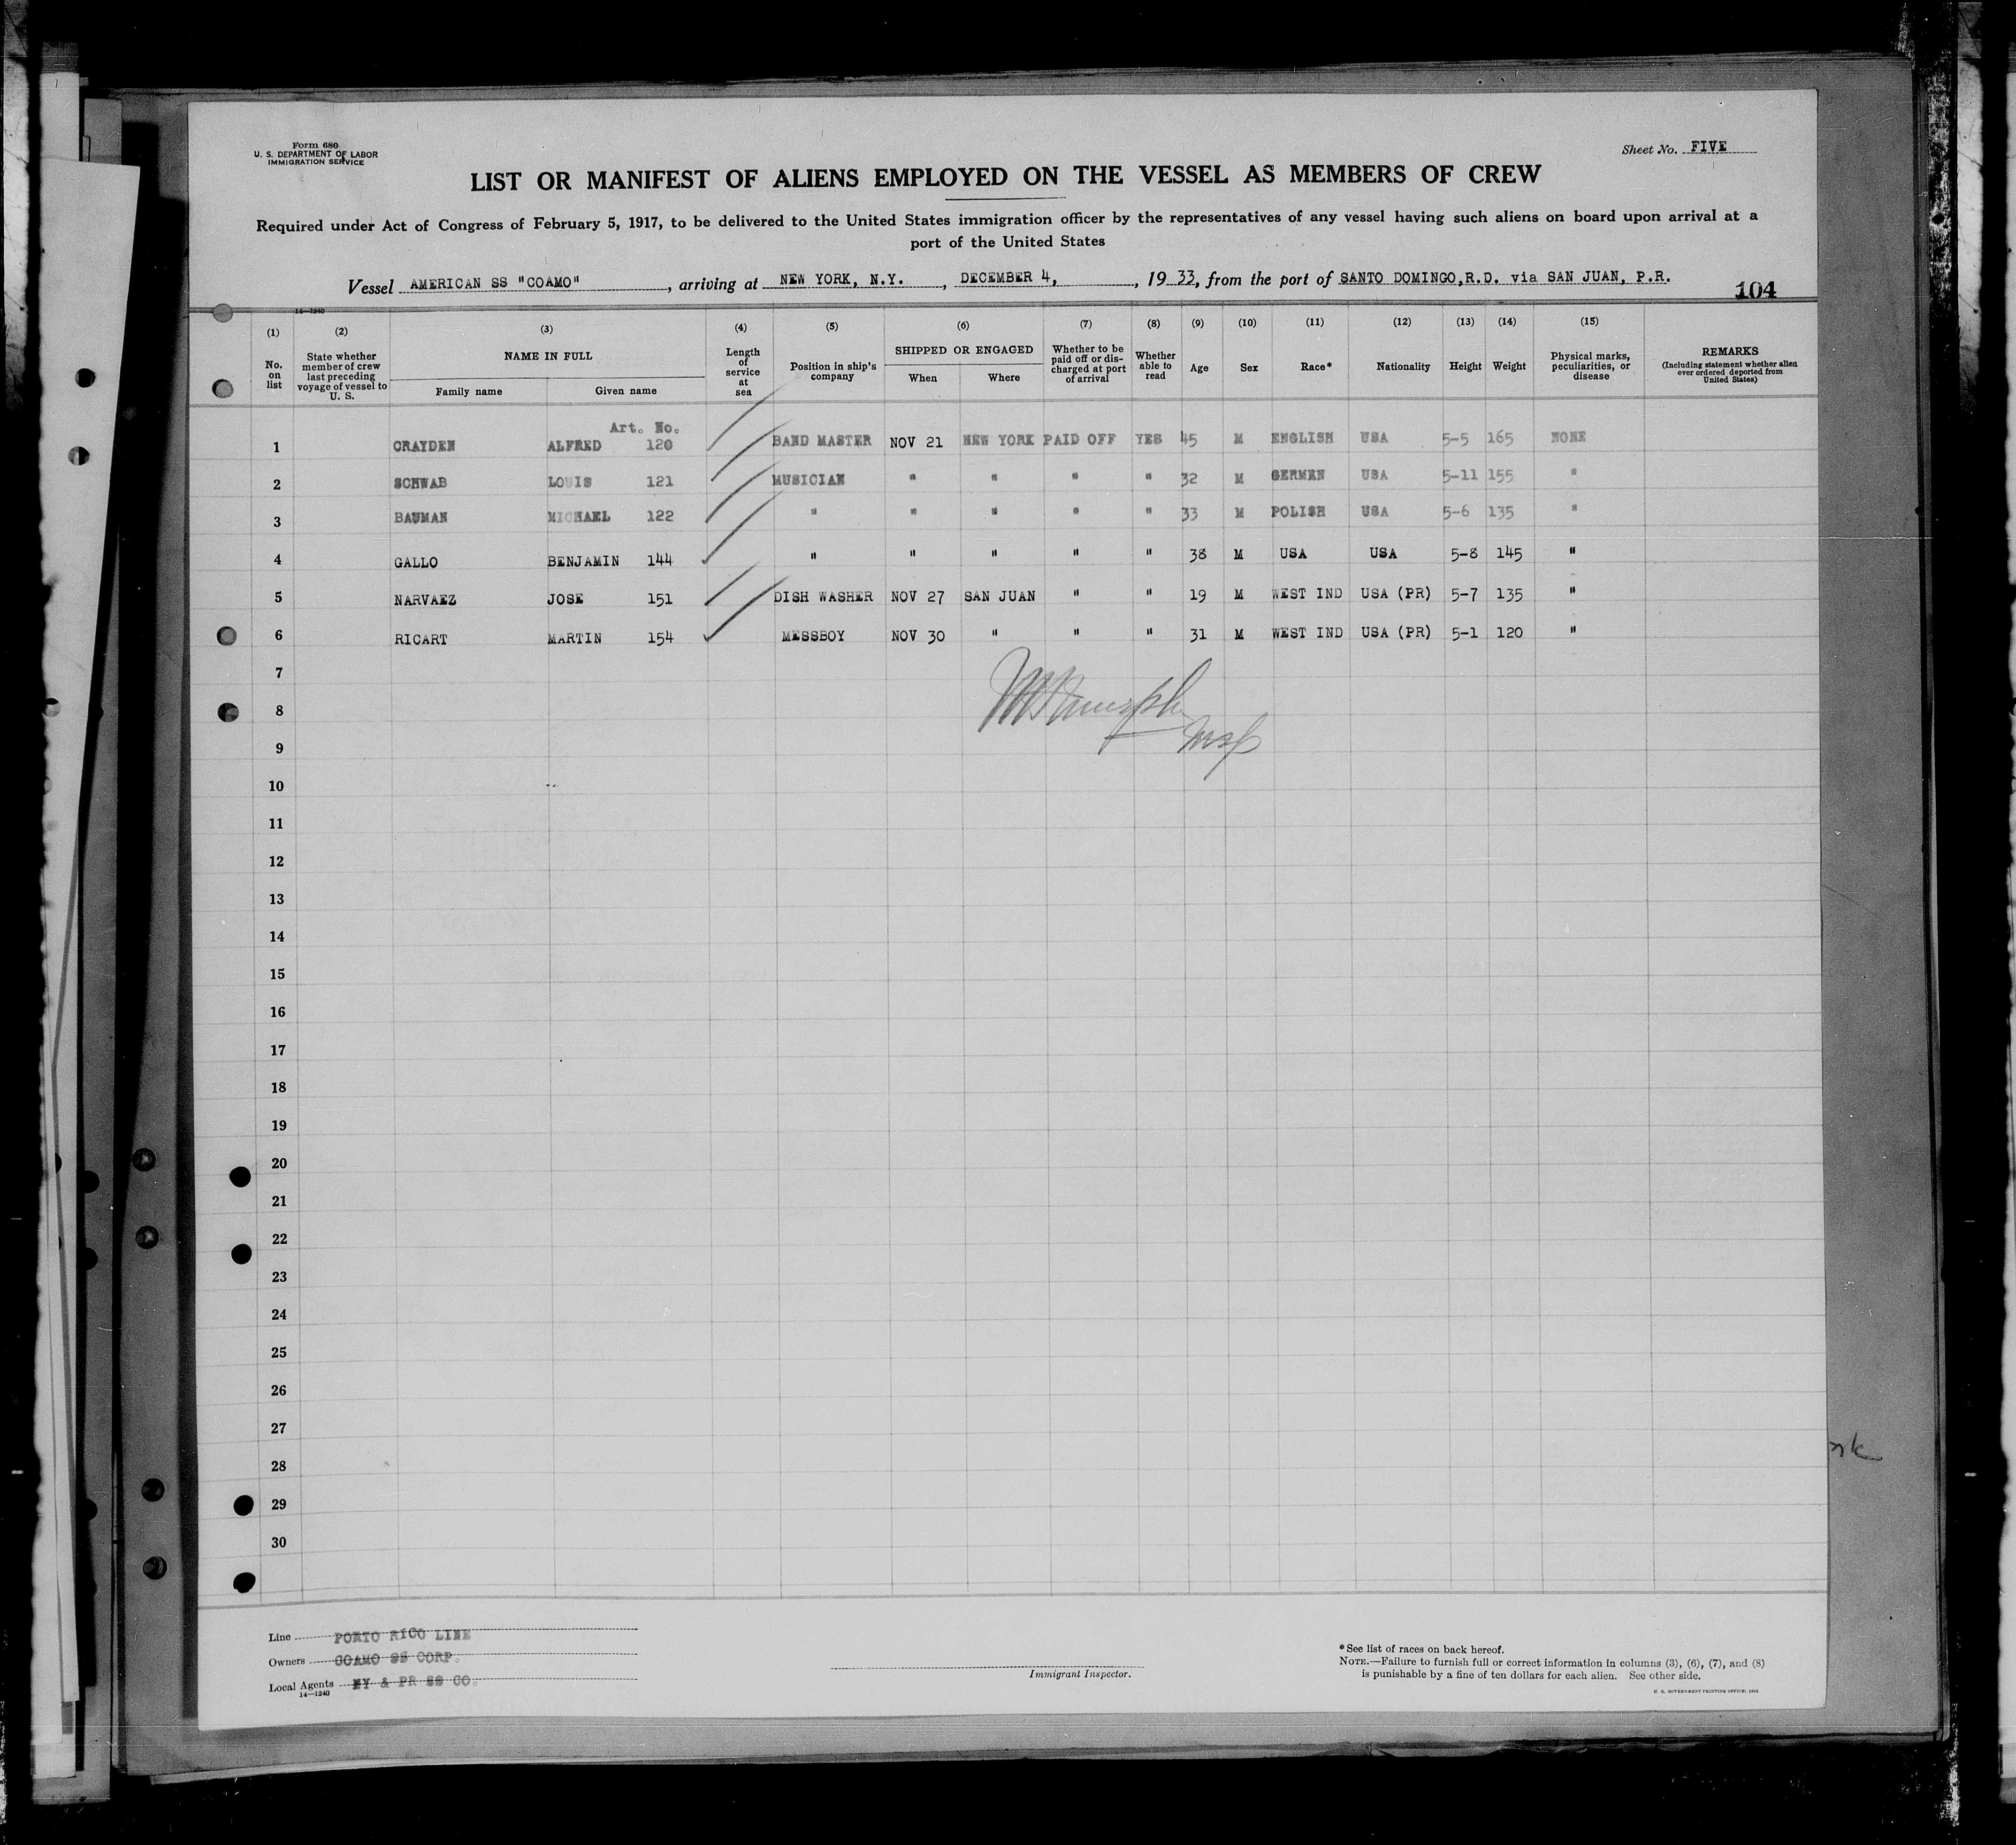 Form 680
U. S. DEPARTMENT OF LABOR
IMMIGRATION SERVICE
Sheet No. FIVE
LIST OR MANIFEST OF ALIENS EMPLOYED ON THE VESSEL AS MEMBERS OF CREW
Required under Act of Congress of February 5, 1917, to be delivered to the United States immigration officer by the representatives of any vessel having such aliens on board upon arrival at a
port of the United States
Vessel AMERICAN SS "COAMO", arriving at NEW YORK, N.Y., DECEMBER 4,, 1933, from the port of SANTO DOMINGO,R.D. via SAN JUAN, P.R.
104
14—1240
(1) (2) (3) (4) (5) (6) (7) (8) (9) (10) (11) (12) (13) (14) (15)
No. on list
State whether member of crew last preceding voyage of vessel to U. S.
NAME IN FULL
Family name Given name
Length of service at sea
Position in ship's company
SHIPPED OR ENGAGED
When Where
Whether to be paid off or discharged at port of arrival
Whether able to read
Age
Sex
Race*
Nationality
Height
Weight
Physical marks, peculiarities, or disease
REMARKS
(Including statement whether alien ever ordered deported from United States)
Art. No.
1 CRAYDEN ALFRED 120 BAND MASTER NOV 21 NEW YORK PAID OFF YES 45 M ENGLISH USA 5-5 165 NONE
2 SCHWAB LOUIS 121 MUSICIAN " " " " 32 M GERMEN USA 5-11 155 "
3 BAUMAN MICHAEL 122 " " " " " 33 M POLISH USA 5-6 135 "
4 GALLO BENJAMIN 144 " " " " " 38 M USA USA 5-8 145 "
5 NARVAEZ JOSE 151 DISH WASHER NOV 27 SAN JUAN " " 19 M WEST IND USA (PR) 5-7 135 "
6 RICART MARTIN 154 MESSBOY NOV 30 " " " 31 M WEST IND USA (PR) 5-1 120 "
7
8
9
10
11
12
13
14
15
16
17
18
19
20
21
22
23
24
25
26
27
28
29
30
Line PORTO RICO LINE
Owners COAMO SS CORP.
Local Agents NY & PR SS CO.
14—1240
Immigrant Inspector.
*See list of races on back hereof.
NOTE.—Failure to furnish full or correct information in columns (3), (6), (7), and (8)
is punishable by a fine of ten dollars for each alien. See other side.